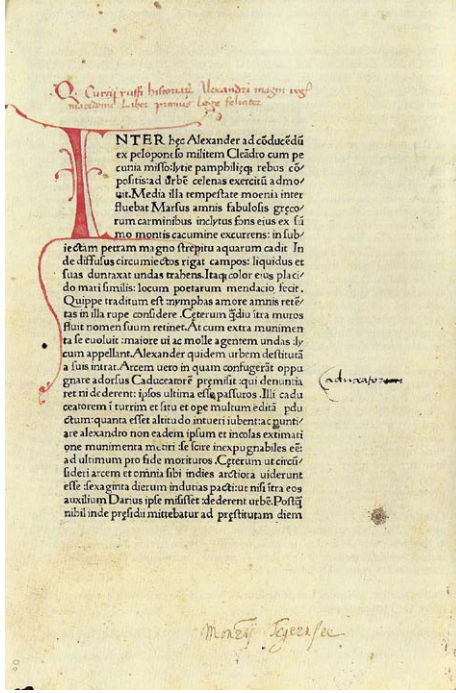 Q. Curtij ruffi historiarꝝ Alexandri magni regis
macedonie Liber primus Lege feliciter
INTER hęc Alexander ad cōducēdū
ex peloponeso militem Cleādro cum pe
cunia misso:lytie pamphilięq; rebus cō
positis:ad ūrbē celenas exercitū admo
uit.Media illa tempestate moenia inter
fluebat Marsus amnis fabulosis gręco
rum carminibus inclytus fons eius ex sū
mo montis cacumine excurrens: in sub
iectam petram magno strepitu aquarum cadit In
de diffusus circumiectos rigat campos: liquidus et
suas duntaxat undas trahens.Itaq; color eius placi
do mari similis: locum poetarum mendacio fecit.
Quippe traditum est nymphas amore amnis retē
tas in illa rupe considere .Cęterum q̄diu ītra muros
fluit nomen suum retinet.At cum extra munimen
ta se euoluit :maiore ui ac molle agentem undas :ly
cum appellant.Alexander quidem urbem destitutā
a suis intrat.Arcem uero in quam confugerāt oppu
gnare adorsus Caduceatorē pręmisit :qui denuncia
ret ni dederent: ipsos ultima esse passuros .Illi cadu
ceatorem ī turrim et situ et ope multum editā pdu
ctum:quanta esset altitudo intueri iubent:ac nunti/
are alexandro non eadem ipsum et incolas extimati
one munimenta metiri :se scire inexpugnabiles eē:
ad ultimum pro fide morituros .Cęterum ut circū/
sideri arcem et omnia sibi indies arctiora uiderunt
esse :sexaginta dierum indutias pacti:ut nisi ītra eos
auxilium Darius ipse misisset :dederent urbē.Postq̄
nihil inde pręsidii mittebatur ad pręstitutam diem
Caduceatorem